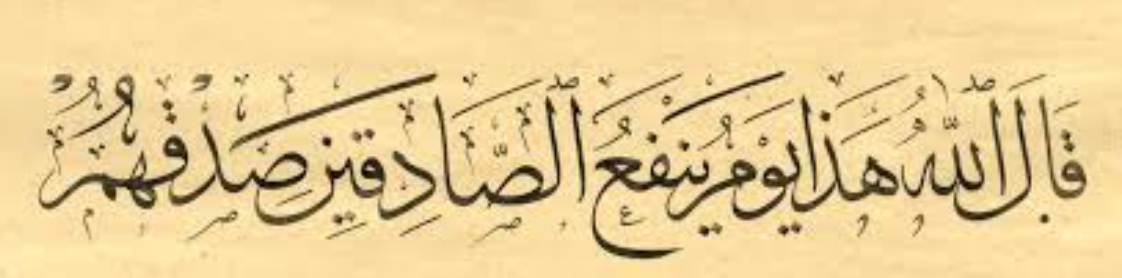 قَالَ اللّٰهُ هَذَا يَوْمُ يَنْفَعُ الصَّادِقِينَ صِدْقُهُمْ